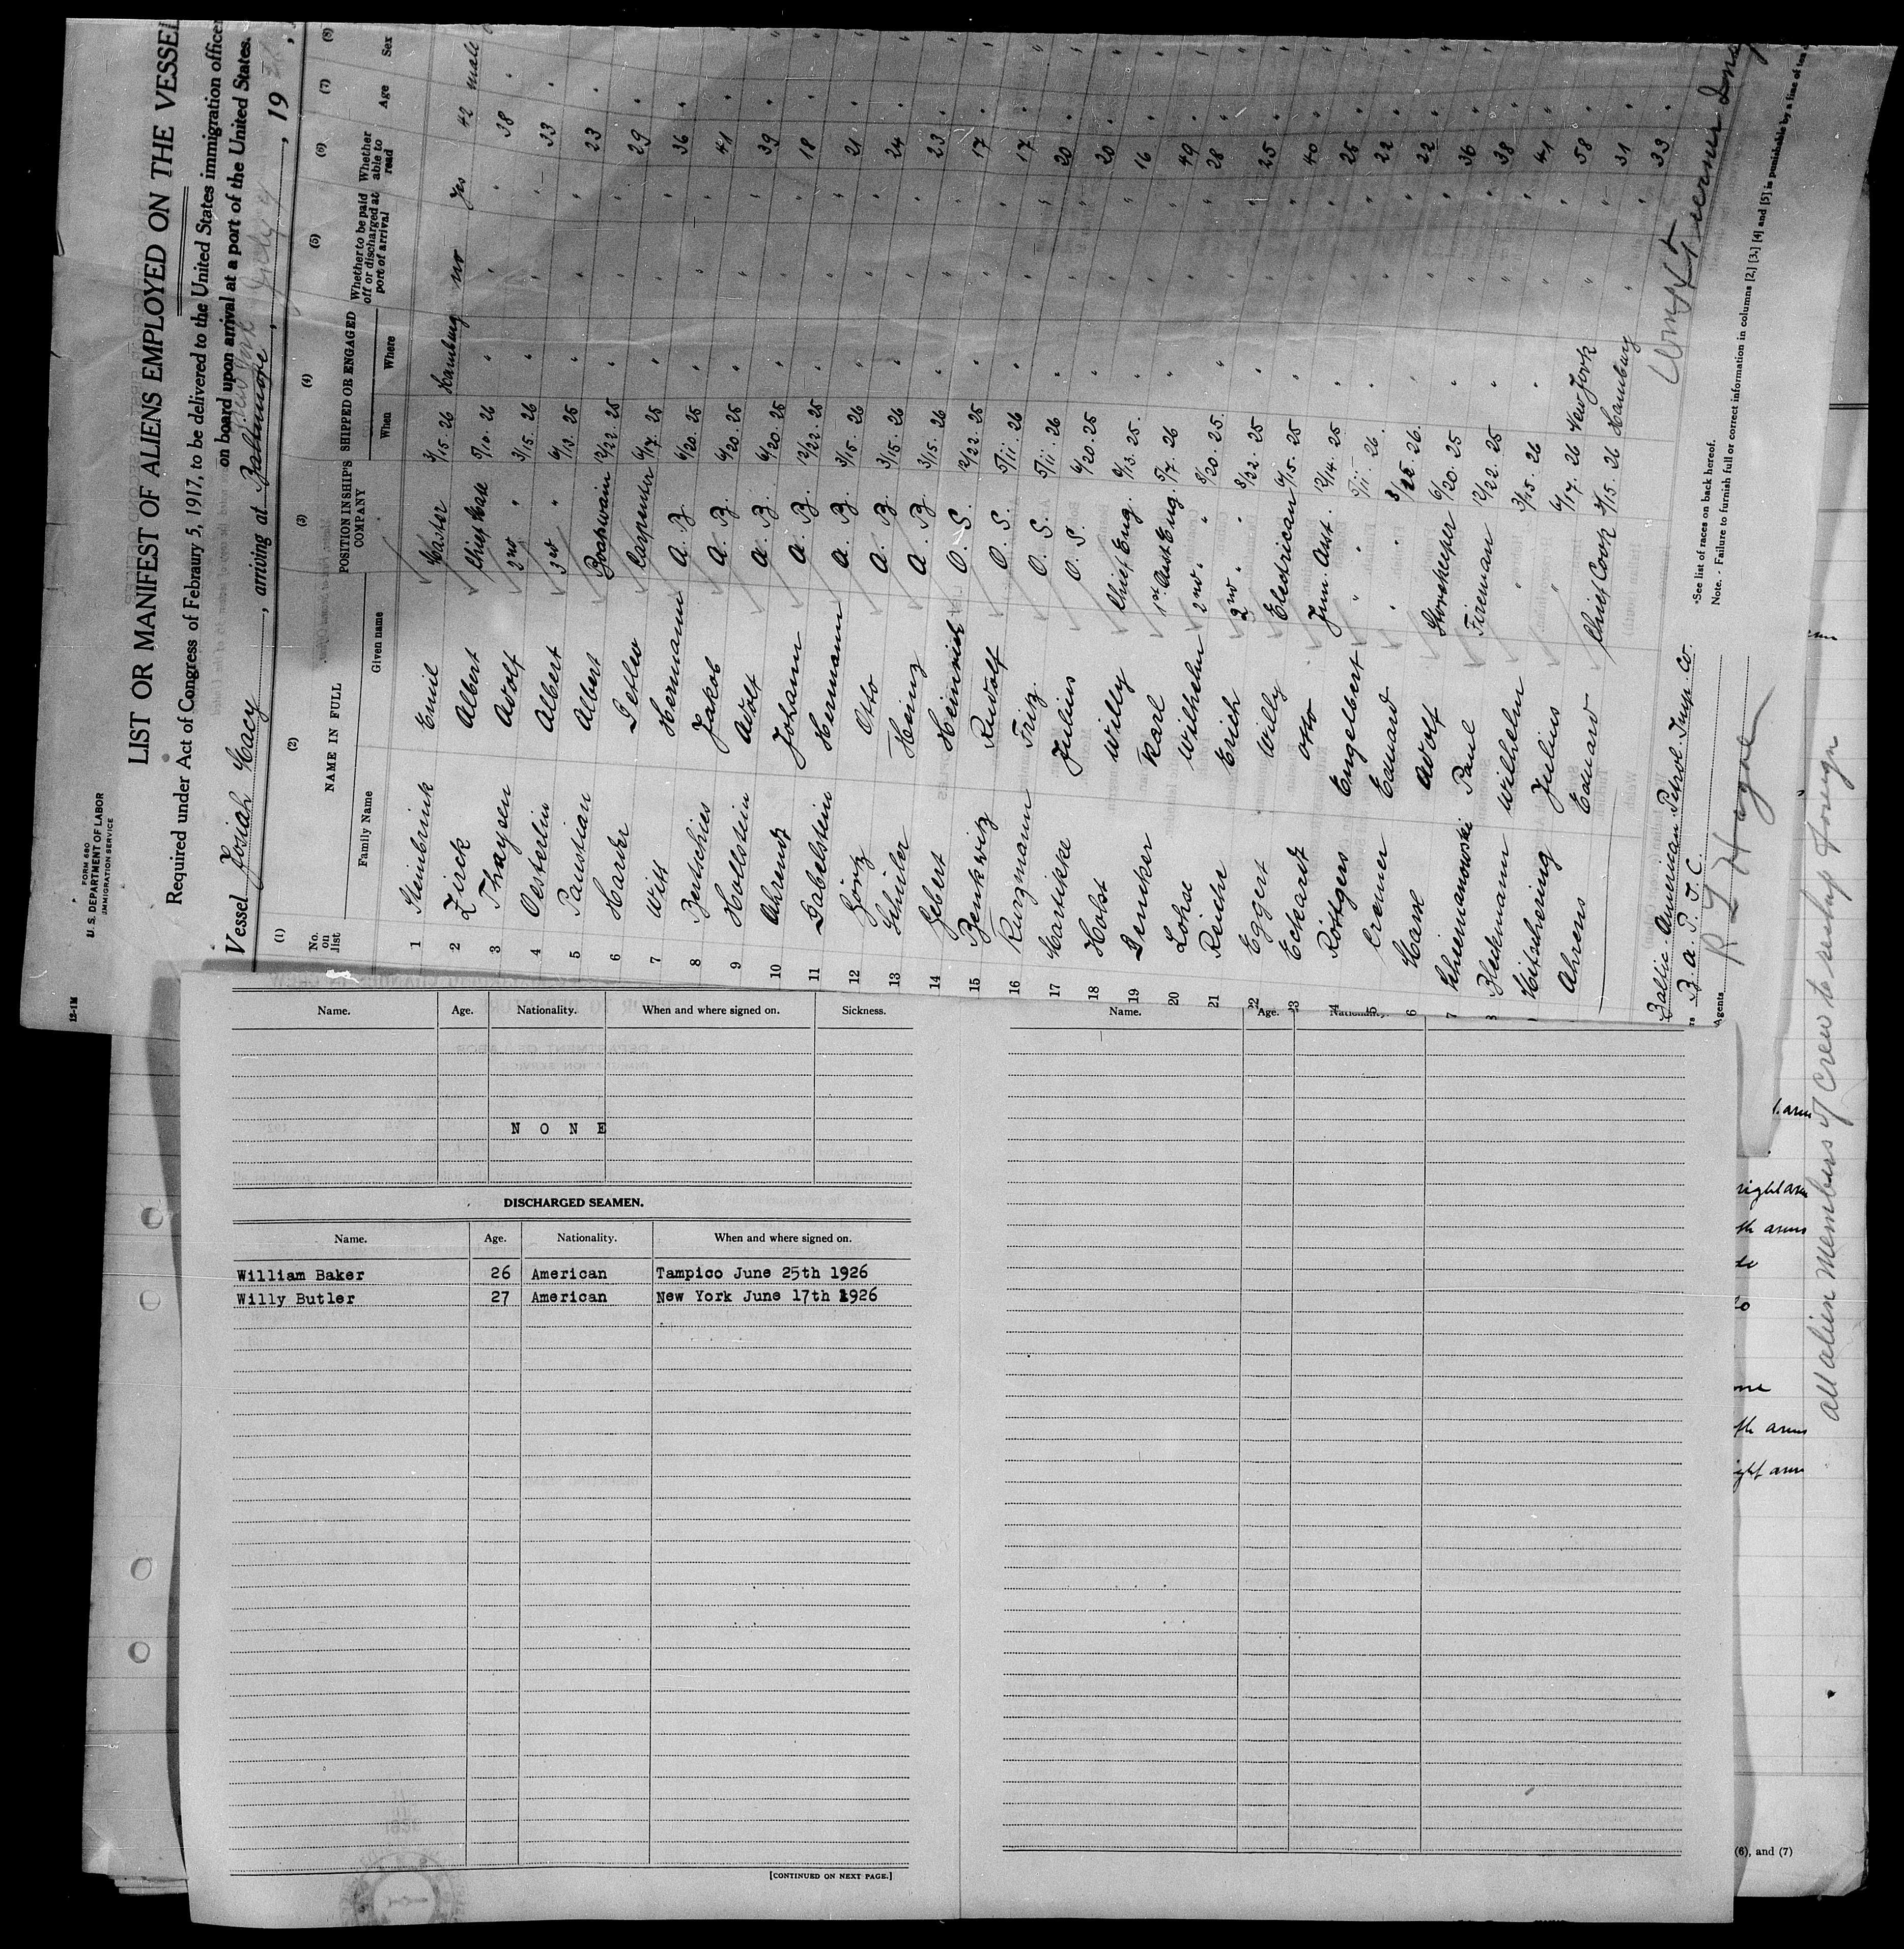 FORM 680
U. S. DEPARTMENT OF LABOR
IMMIGRATION SERVICE
LIST OR MANIFEST OF ALIENS EMPLOYED ON THE VESSEL
Required under Act of Congress of Febraury 5, 1917, to be delivered to the United States immigration officer
on board upon arrival at a port of the United States.
Vessel Josiah Macy, arriving at Baltimore New York July 4, 1926
(1) (2) (3) (4) (5) (6) (7) (8)
No. on list NAME IN FULL POSITION IN SHIP'S COMPANY SHIPPED OR ENGAGED Whether to be paid off or discharged at port of arrival Whether able to read Age Sex
Family Name Given name When Where
1 Steinbrink Emil Master 3/15. 26 Hamburg no yes 42 male
2 Zirck Albert Chief Mate 5/10. 26 " " " 38 "
3 Thaysen Adolf 2nd " 3/15. 26 " " " 33 "
4 Oesterlin Albert 3rd " 6/13. 25 " " " 23 "
5 Paustian Albert Boatswain 12/22. 25 " " " 29 "
6 Harder Detlev Carpenter 6/17. 25 " " " 36 "
7 Witt Hermann A. B. 6/20. 25 " " " 41 "
8 Bertschies Jakob A. B. 6/20. 25 " " " 39 "
9 Hollstein Adolf A. B. 6/20. 25 " " " 18 "
10 Ahrendt Johann A. B. 12/22. 25 " " " 21 "
11 Gabelstein Hermann A. B. 3/15. 26 " " " 24 "
12 Görtz Otto A. B. 3/15. 26 " " " 23 "
13 Schüler Heinz A. B. 3/15. 26 " " " 17 "
14 Gebert Heinrich O. S. 12/22. 25 " " " 17 "
15 Benkwitz Rudolf O. S. 5/11. 26 " " " 20 "
16 Kurzmann Fritz O. S. 5/11. 26 " " " 20 "
17 Martikke Julius O. S. 6/20. 25 " " " 16 "
18 Holst Willy Chief Eng. 6/13. 25. " " " 49 "
19 Denker Karl 1st Asst Eng. 5/7. 26 " " " 28 "
20 Lohse Wilhelm 2nd " " 8/20. 25. " " " 25 "
21 Reiche Erich 2nd " 8/22. 25 " " " 40 "
22 Eggert Willy Electrician 6/15. 25 " " " 25 "
23 Eckardt Otto Jun. Asst. 12/14. 25 " " " 22 "
4 Röttgers Engelbert " 5/11. 26. " " " 22 "
5 Cremer Eduard " 3/15. 26. " " " 36 "
6 Mark Adolf Storekeeper 6/20. 25 " " " 38 "
7 Schiemanowski Paul Fireman 12/22 25 " " " 41 "
8 Bleckmann Wilhelm " 3/15. 26 " " " 58 "
Mitschering Julius " 6/17. 26 New York " " 31 "
Ahrens Eduard Chief Cook 3/15. 26 Hamburg " " 33 "
Baltic-American Petrol. Imp. Co.
B. A. P. I. C.
Agents
*See list of races on back hereof.
Note. - Failure to furnish full or correct information in columns [2,] [3,] [4] and [5] is punishable by a fine of ten
12-1M
all alien members of crew to reship foreign
Name. Age. Nationality. When and where signed on. Sickness.
NONE
DISCHARGED SEAMEN.
Name. Age. Nationality. When and where signed on.
William Baker 26 American Tampico June 25th 1926
Willy Butler 27 American New York June 17th 1926
[CONTINUED ON NEXT PAGE.]
Name. Age. Nationality.
arm
right arm
th arms
do
th arms
ight arm
(6), and (7)